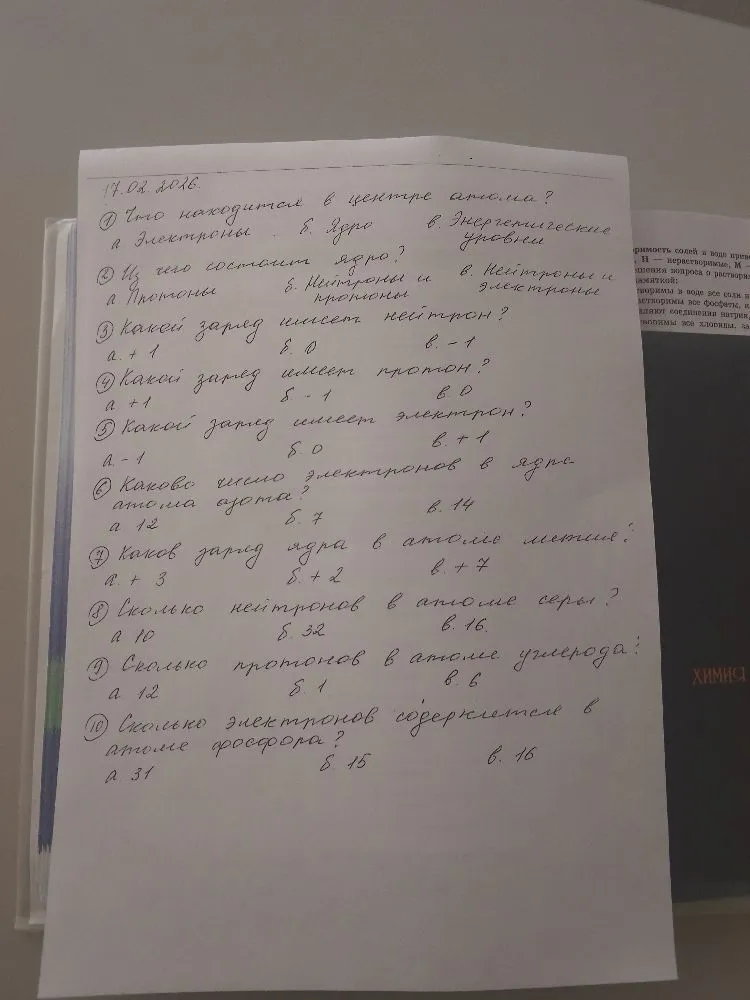 17.02.2026.
① Что находится в центре атома?
а Электроны. б. Ядро в. Энергетические уровни
② Из чего состоит ядро?
а Протоны б. Нейтроны и протоны в. Нейтроны и электроны
③ Какой заряд имеет нейтрон?
а. +1 б. 0 в. -1
④ Какой заряд имеет протон?
а +1 б. -1 в. 0
⑤ Какой заряд имеет электрон?
а. -1 б. 0 в. +1
⑥ Каково число электронов в ядре
атома азота?
а 12 б. 7 в. 14
⑦ Каков заряд ядра в атоме лития?
а. +3 б. +2 в. +7
⑧ Сколько нейтронов в атоме серы?
а 10 б. 32 в. 16.
⑨ Сколько протонов в атоме углерода?
а 12 б. 1 в. 6
⑩ Сколько электронов содержится в
атоме фосфора?
а 31 б. 15 в. 16
солей в воде
Н — нерастворимые, М —
вопроса о
в воде все соли
все фосфаты,
соединения натрия,
все хлориды,
ХИМИЯ